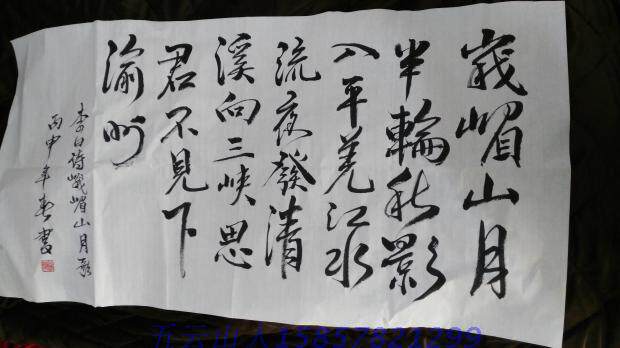 峩嵋山月
半輪秋影
入平羌江水
流夜發清
溪向三峽思
君不見下
渝州
李白詩峨嵋山月歌
丙申年春書
五云山人15857821299